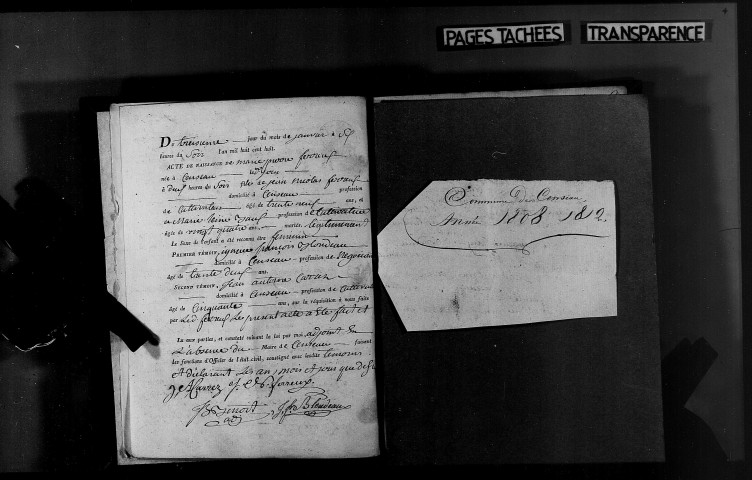 PAGES TACHEES TRANSPARENCE
Du troisieme jour du mois de janvier à
heures du Soir l'an mil huit cent huit.
ACTE DE NAISSANCE de marie
née à Censeau le
à heures du Soir fille de jean nicolas
domicilié à Censeau profession
de Cultivateur âgé de trente neuf ans, et
de Marie profession de Cultivateur
âgée de vingt quatre ans, mariés legitimement
Le Sexe de l'enfant a été reconnu être feminin
PREMIER TÉMOIN, françois Blondeau
domicilié à Censeau profession de
âgé de trente ans.
SECOND TÉMOIN, jean antoine
domicilié à Censeau profession de Cultivateur
âgé de Cinquante ans, sur la réquisition à nous faite
par Led. Le present acte a été fait et
Lu aux parties, et constaté suivant la loi par moi adjoint En
L'absence du Maire de Censeau faisant
des fonctions d'Officier de l'état civil, consigné avec lesdits temoins
et déclarant Les an, mois et jour que dessus
Benoit J. f. Blondeau
Commune de Censeau
Année 1808 1812.